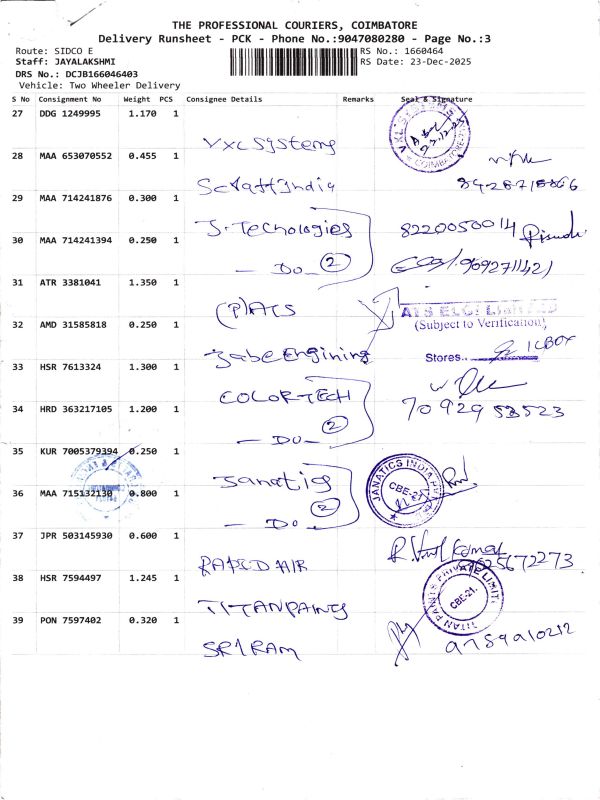 THE PROFESSIONAL COURIERS, COIMBATORE
Delivery Runsheet - PCK - Phone No.:9047080280 - Page No.:3
Route: SIDCO E
Staff: JAYALAKSHMI
DRS No.: DCJB166046403
Vehicle: Two Wheeler Delivery
RS No.: 1660464
RS Date: 23-Dec-2025
S No Consignment No Weight PCS Consignee Details Remarks Seal & Signature
27 DDG 1249995 1.170 1
VXL Systems
28 MAA 653070552 0.455 1
India
29 MAA 714241876 0.300 1
J. Tecnologies 8220050014
30 MAA 714241394 0.250 1
- Do - 2
31 ATR 3381041 1.350 1
(P) ATS
ATS ELGI LIMITED
(Subject to Verification)
32 AMD 31585818 0.250 1
Stores..
33 HSR 7613324 1.300 1
COLORTECH
34 HRD 363217105 1.200 1
70 929 53523
- DO - 2
35 KUR 7005379394 0.250 1
Janatics 2
JANATICS INDIA
CBE-21
36 MAA 715132130 0.800 1
- Do -
37 JPR 503145930 0.600 1
RAPID AIR
38 HSR 7594497 1.245 1
TITAN PAINTS
TITAN PAINTS PRIVATE LIMIT
CBE-21.
39 PON 7597402 0.320 1
SRI RAM